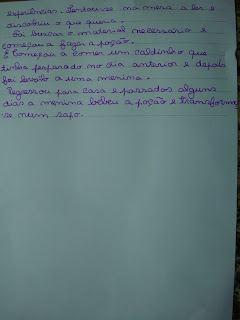 experiências. Sentou-se na mesa a ler e
descobriu o que queria.
Foi buscar o material necessário e
começou a fazer a poção.
E começou a comer um caldinho que
tinha preparado no dia anterior e depois
foi levá-lo a uma menina.
Regressou para casa e passados alguns
dias a menina bebeu a poção e transforma-
se num sapo.